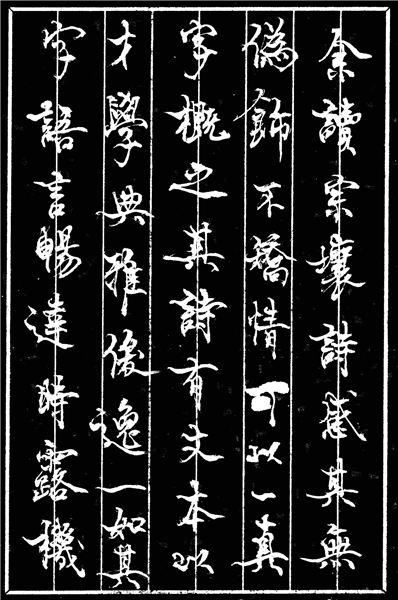 余讀宗壤詩感其無
偽飾不矯情可以一真
字概之其詩有文本以
才學典雅俊逸一如其
字語言暢達時露機